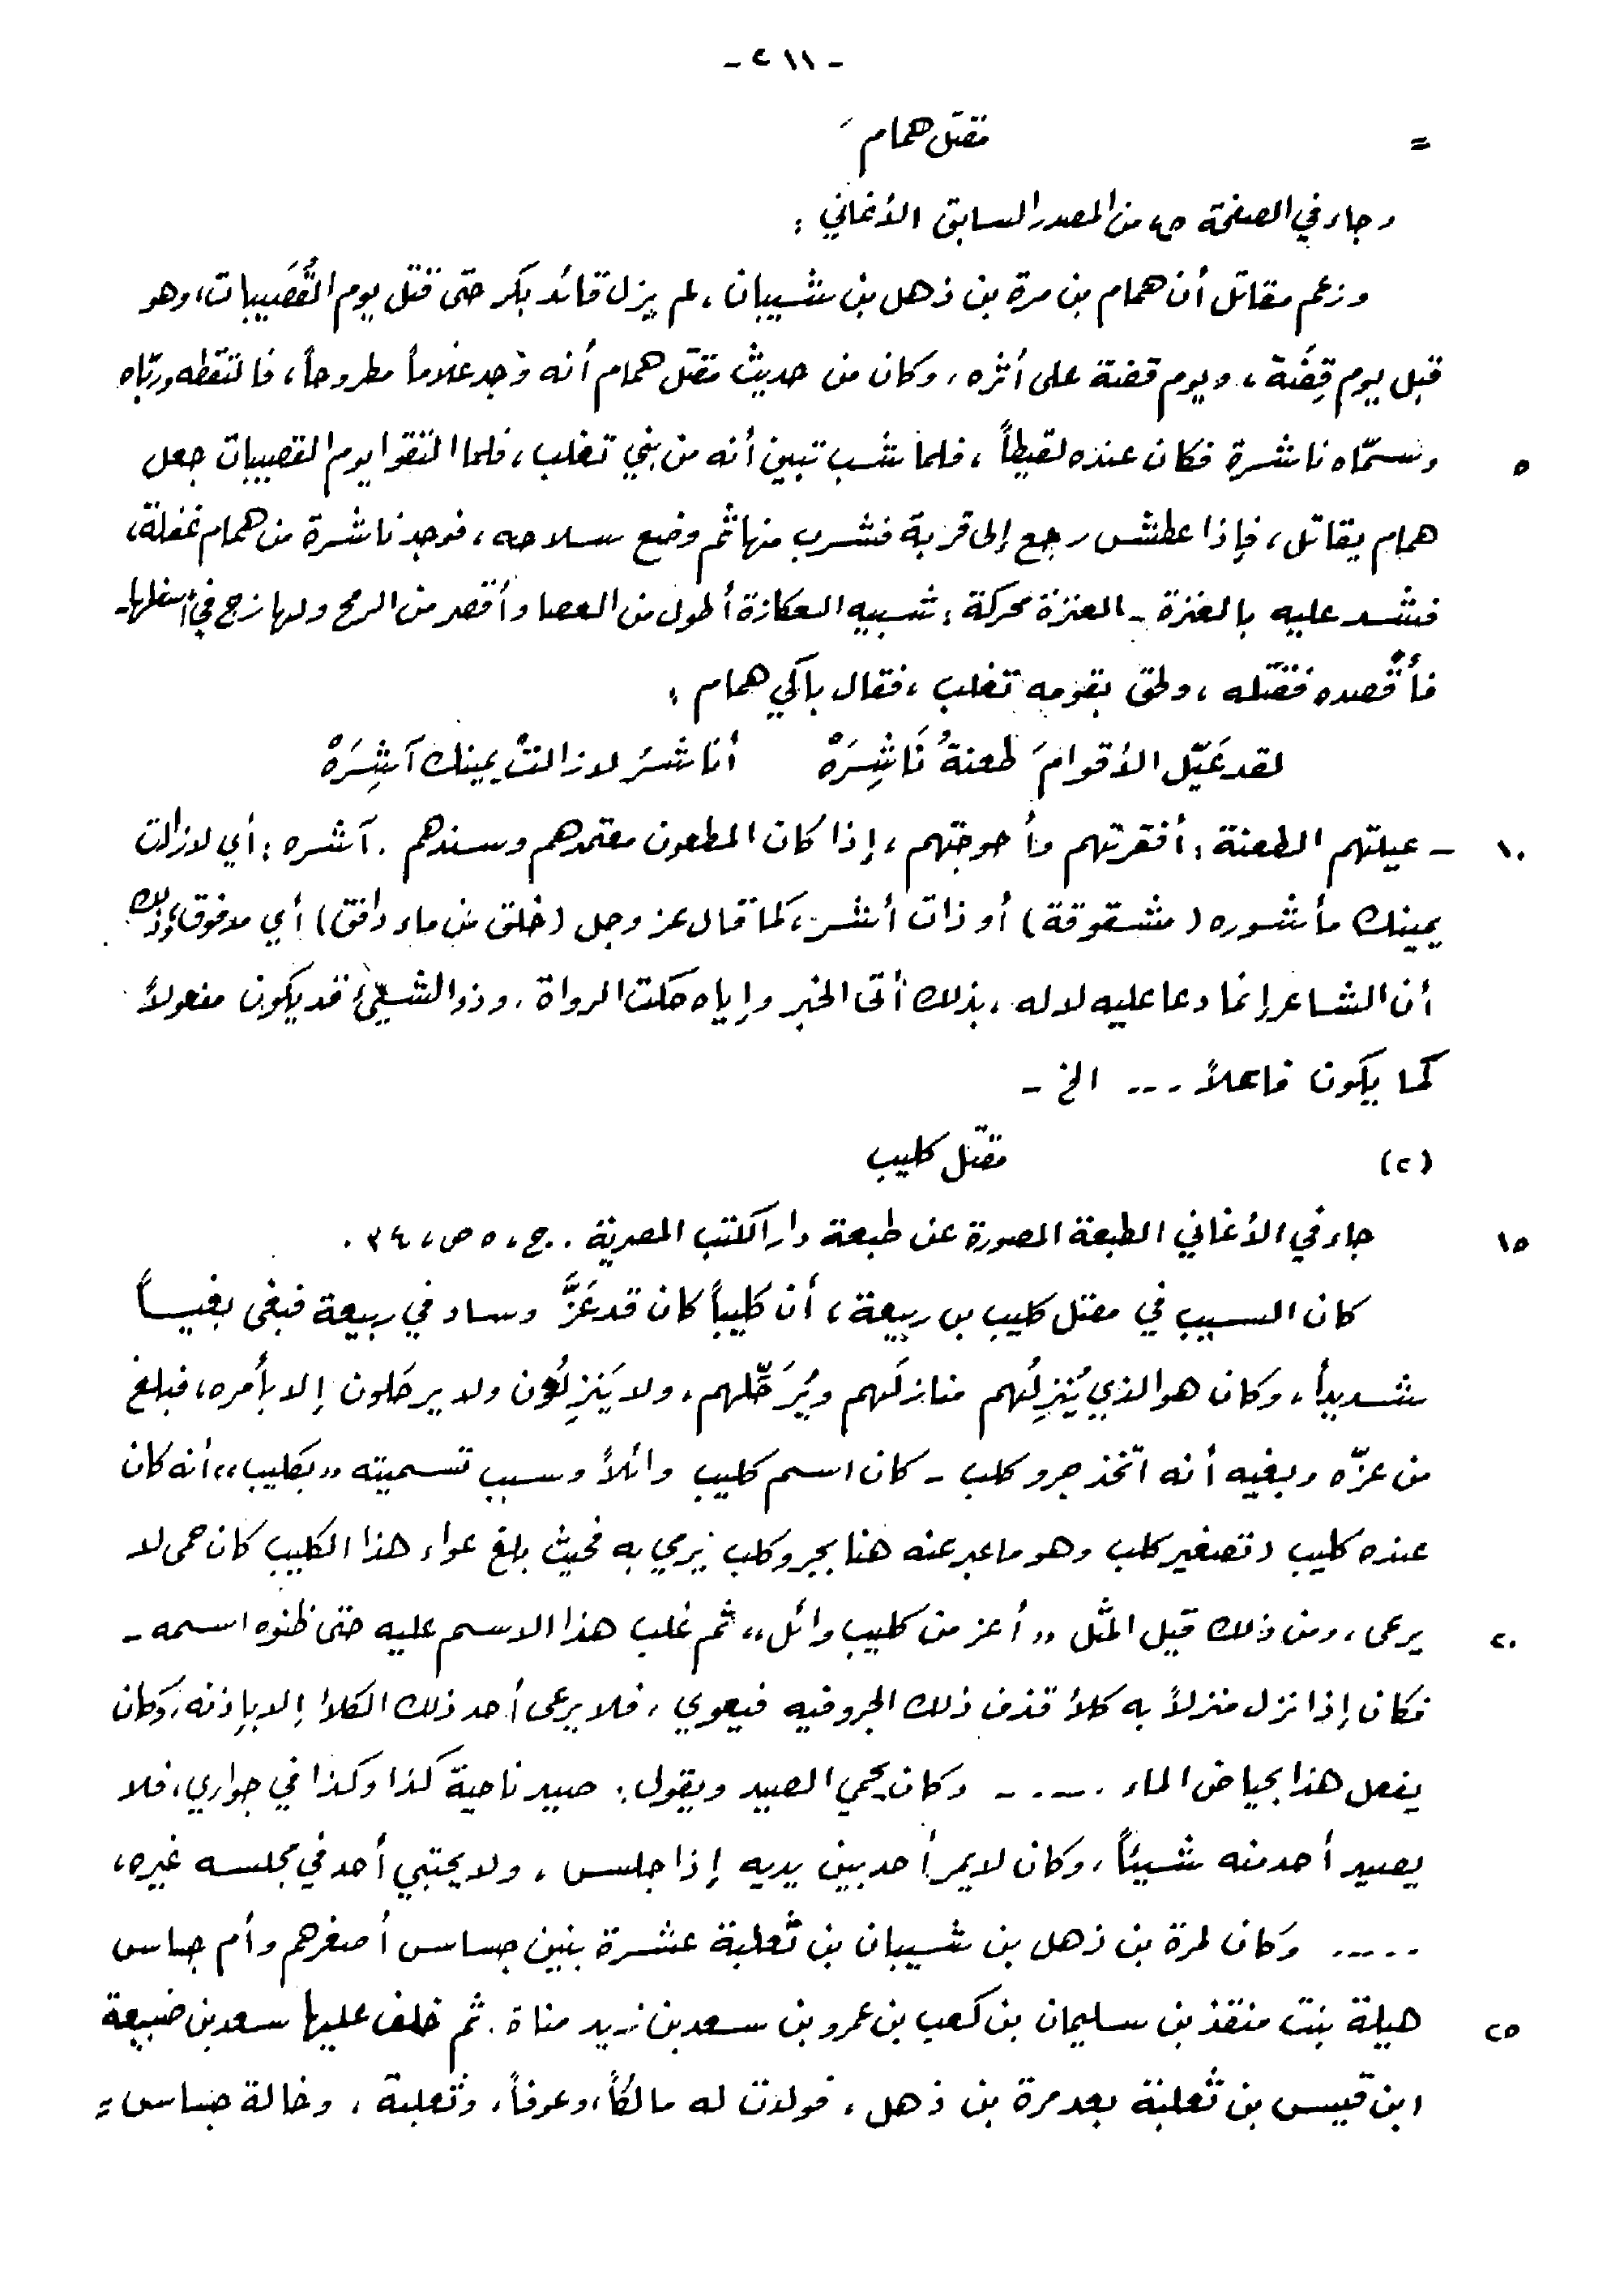 - ٢١١ -
= مقتل همام
وجاء في الصفحة ٤٥ من المصدر السابق الأغاني :
وزعم مقاتل أن همام بن مرة بن ذهل بن شيبان ، لم يزل قائد بكر حتى قتل يوم القُصَيبات ، وهو
قبل يوم قِضَة ، ويوم قضة على أثره ، وكان من حديث مقتل همام أنه وجد غلاماً مطروحاً ، فالتقطه وربّاه
٥ وسمّاه ناشرة فكان عنده لقيطاً ، فلما شب تبين أنه من بني تغلب ، فلما التقوا يوم القصيبات جعل
همام يقاتل ، فإذا عطش رجع إلى قربة فشرب منها ثم وضع سلاحه ، فوجد ناشرة من همام غفلة ،
فشد عليه بالعنزة - العنزة محركة : شبيه العكازة أطول من العصا وأقصر من الرمح ولها زج في أسفلها -
فأقصده فقتله ، ولحق بقومه تغلب ، فقال باكي همام :
لقد عَيّل الأقوامَ طعنةُ نَاشِرَهْ أنَاشرُ لا زالتْ يمينك آشِرَهْ
١٠ - عيلتهم الطعنة : أفقرتهم وأحوجتهم ، إذا كان المطعون معتمدهم وسندهم . آشره : أي لا زالت
يمينك مأشوره ( مشقوقة ) أو ذات أشر ، كما قال عز وجل ( خلق من ماء دافق ) أي مدفوق ، وذلك
أن الشاعر إنما دعا عليه لا له ، بذلك أتى الخبر وإياه حكت الرواة . وذو الشيئ قد يكون مفعولاً
كما يكون فاعلاً ... الخ -
(٢) مقتل كليب
١٥ جاء في الأغاني الطبعة المصورة عن طبعة دار الكتب المصرية .. ج ، ٥ ص ، ٣٤ .
كان السبب في مقتل كليب بن ربيعة ، أن كليباً كان قد عَزَّ وساد في ربيعة فبغى بغيـاً
شديداً ، وكان هو الذي يُنزِلُهم منازلَهم ويُرَحِّلهم ، ولا يَنزِلُون ولا يرحَلون إلا بأمره ، فبلغ
من عزّه وبغيه أنه اتخذ جرو كلب - كان اسم كليب وائلاً وسبب تسميته ,, بكليب ،، أنه كان
عنده كليب ( تصغير كلب وهو ما عبر عنه هنا بجرو كلب يرمي به فحيث بلغ عواء هذا الكليب كان حمى لا
٢٠ يرعى ، ومن ذلك قيل المثل ,, أعز من كليب وائل ،، ثم غلب هذا الاسم عليه حتى ظنوه اسمه -
فكان إذا نزل منزلاً به كلأ قذف ذلك الجرو فيه فيعوي ، فلا يرعى أحد ذلك الكلأ إلا بإذنه ، وكان
يفعل هذا بحياض الماء ..... وكان يحمي الصيد ويقول : صيد ناحية كذا وكذا في جواري ، فلا
يصيد أحد منه شيئاً ، وكان لا يمر أحد بين يديه إذا جلس ، ولا يحتبي أحد في مجلسه غيره ،
..... وكان لمرة بن ذهل بن شيبان بن ثعلبة عشرة بنين جساس أصغرهم وأم جساس
٢٥ هيلة بنت منقذ بن سليمان بن كعب بن عمرو بن سعد بن زيد مناة . ثم خلف عليها سعد بن ضبيعة
ابن قيس بن ثعلبة بعد مرة بن ذهل ، فولدت له مالكاً ، وعوفاً ، وثعلبة ، وخالة جساس =